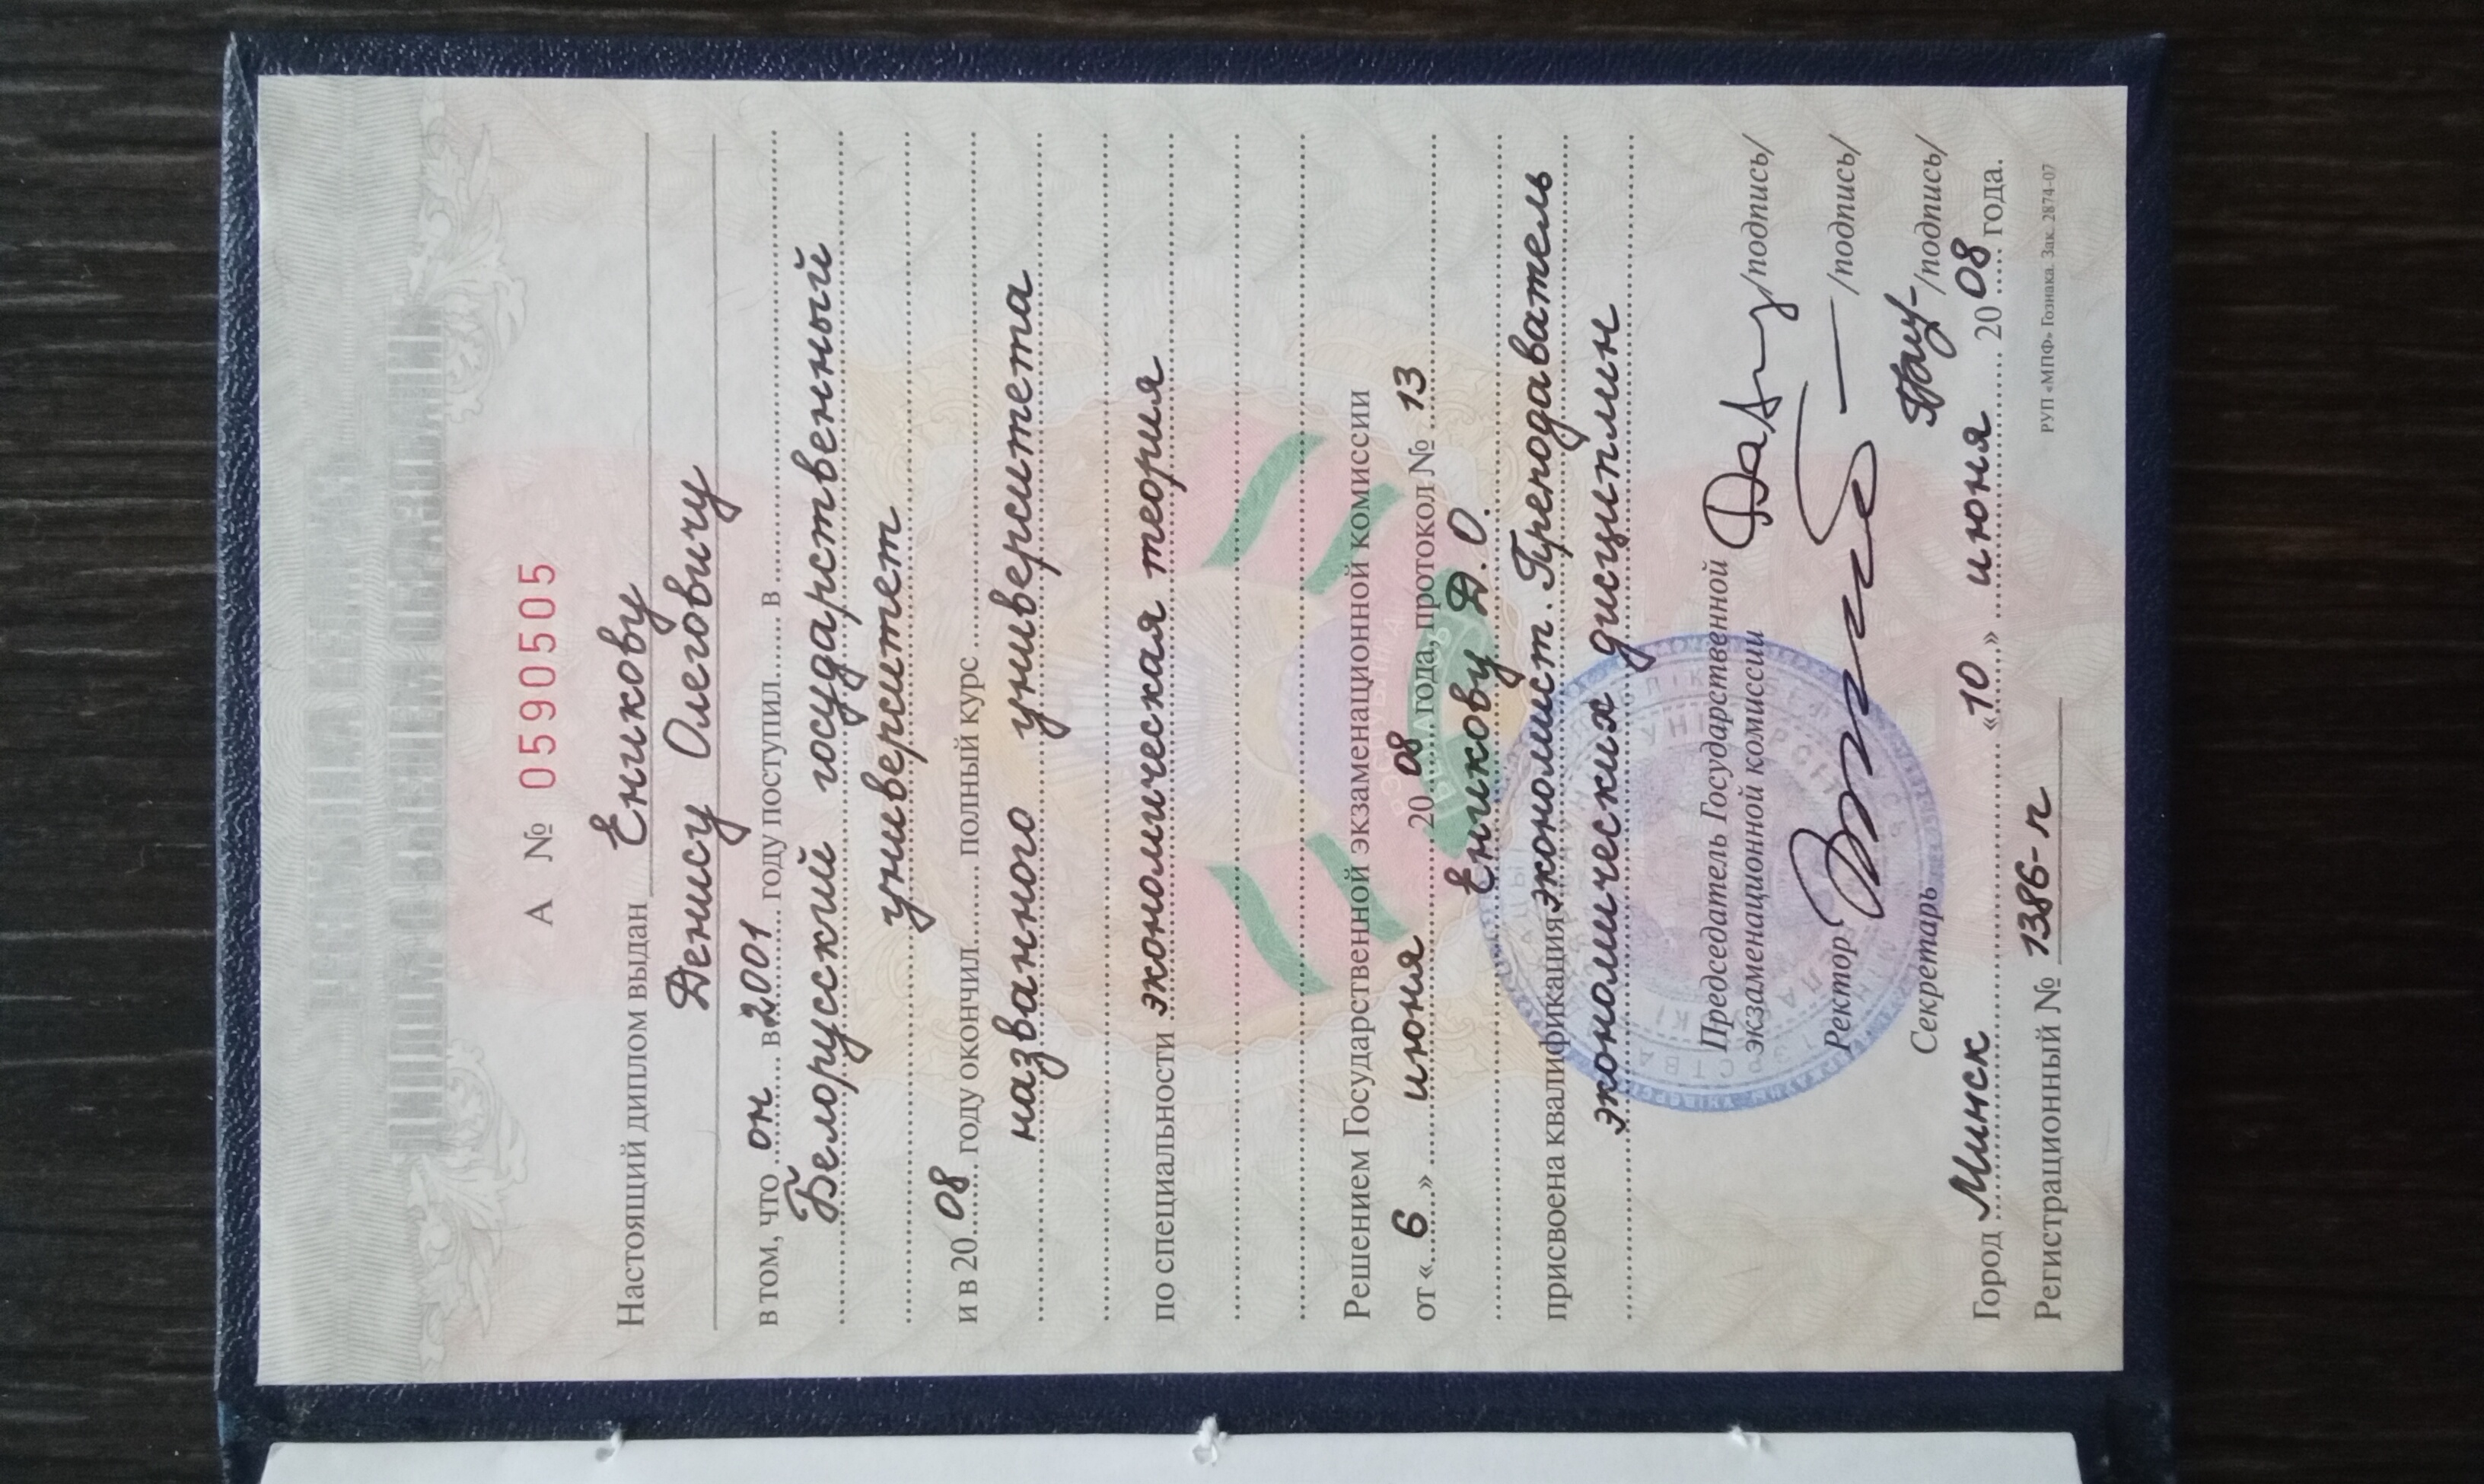 РЕСПУБЛИКА БЕЛАРУСЬ
ДИПЛОМ О ВЫСШЕМ ОБРАЗОВАНИИ
А № 0590505
Настоящий диплом выдан Еникову
Денису Олеговичу
в том, что он в 2001 году поступил в
Белорусский государственный
университет
и в 2008 году окончил полный курс
названного университета
по специальности экономическая теория
Решением Государственной экзаменационной комиссии
от «6» июня 2008 года, протокол № 13
Еникову Д.О.
присвоена квалификация экономист. Преподаватель
экономических дисциплин
Председатель Государственной
экзаменационной комиссии /подпись/
Ректор /подпись/
Секретарь /подпись/
Город Минск «10» июня 2008 года.
Регистрационный № 1386-п
РУП «МПФ» Гознака. Зак. 2874-07